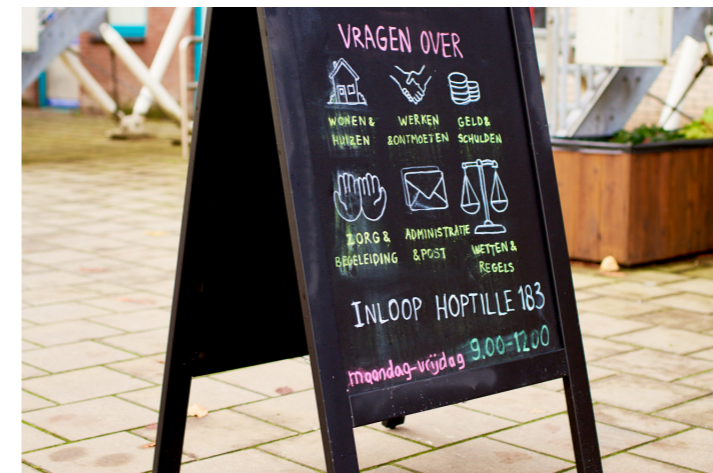 VRAGEN OVER
WONEN &
HUIZEN
WERKEN
& ONTMOETEN
GELD &
SCHULDEN
ZORG &
BEGELEIDING
ADMINISTRATIE
& POST
WETTEN &
REGELS
INLOOP HOPTILLE 183
maandag-vrijdag 9.00-12.00